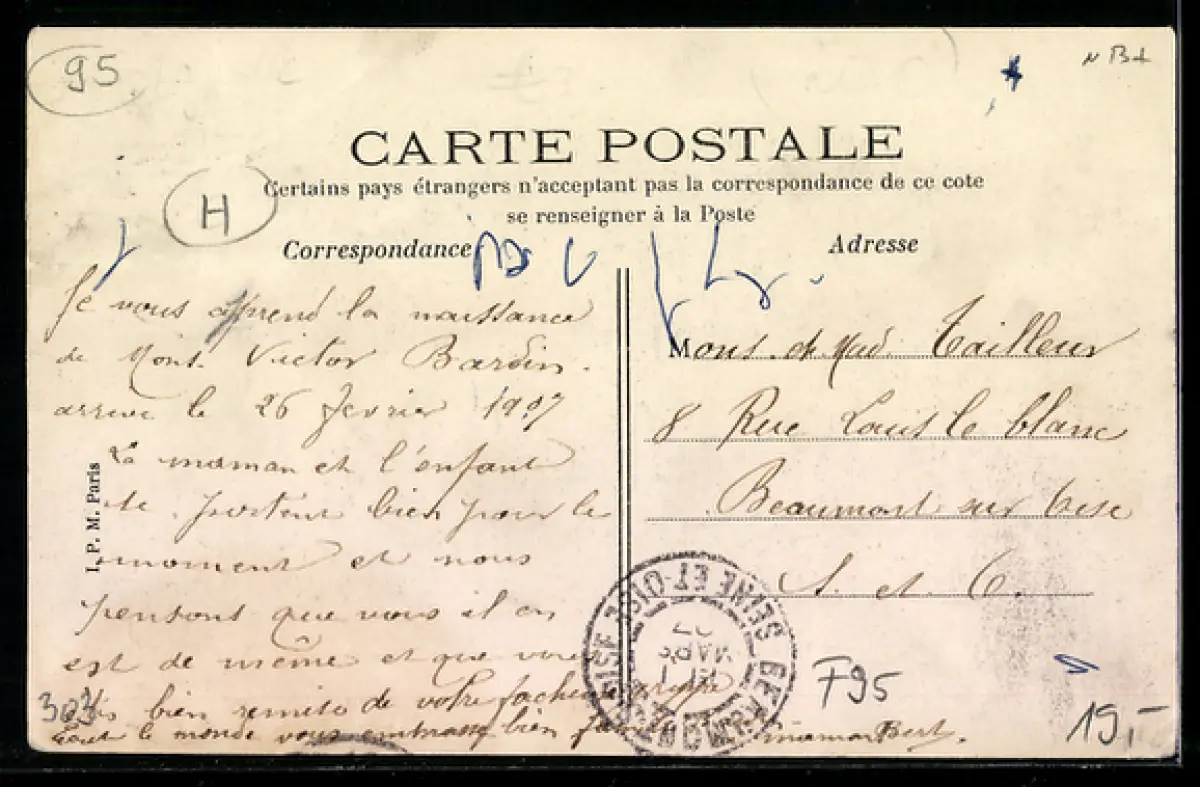 95
CARTE POSTALE
Certains pays étrangers n'acceptant pas la correspondance de ce cote
se renseigner à la Poste
H
Correspondance
Adresse
Je vous apprend la naissance
de Mons. Victor Bardin.
arrive le 26 fevrier 1907
La maman et l'enfant
se portent bien pour le
moment et nous
pensons que vous il en
est de même et que vous
bien remise de votre facheuse grippe
tout le monde vous embrasse bien
I. P. M. Paris
Mons. et Mad. Tailleur
8 Rue Louis le blanc
Beaumont sur Oise
S. et O.
SEINE ET OISE
MARS
07
F95
303
19,-